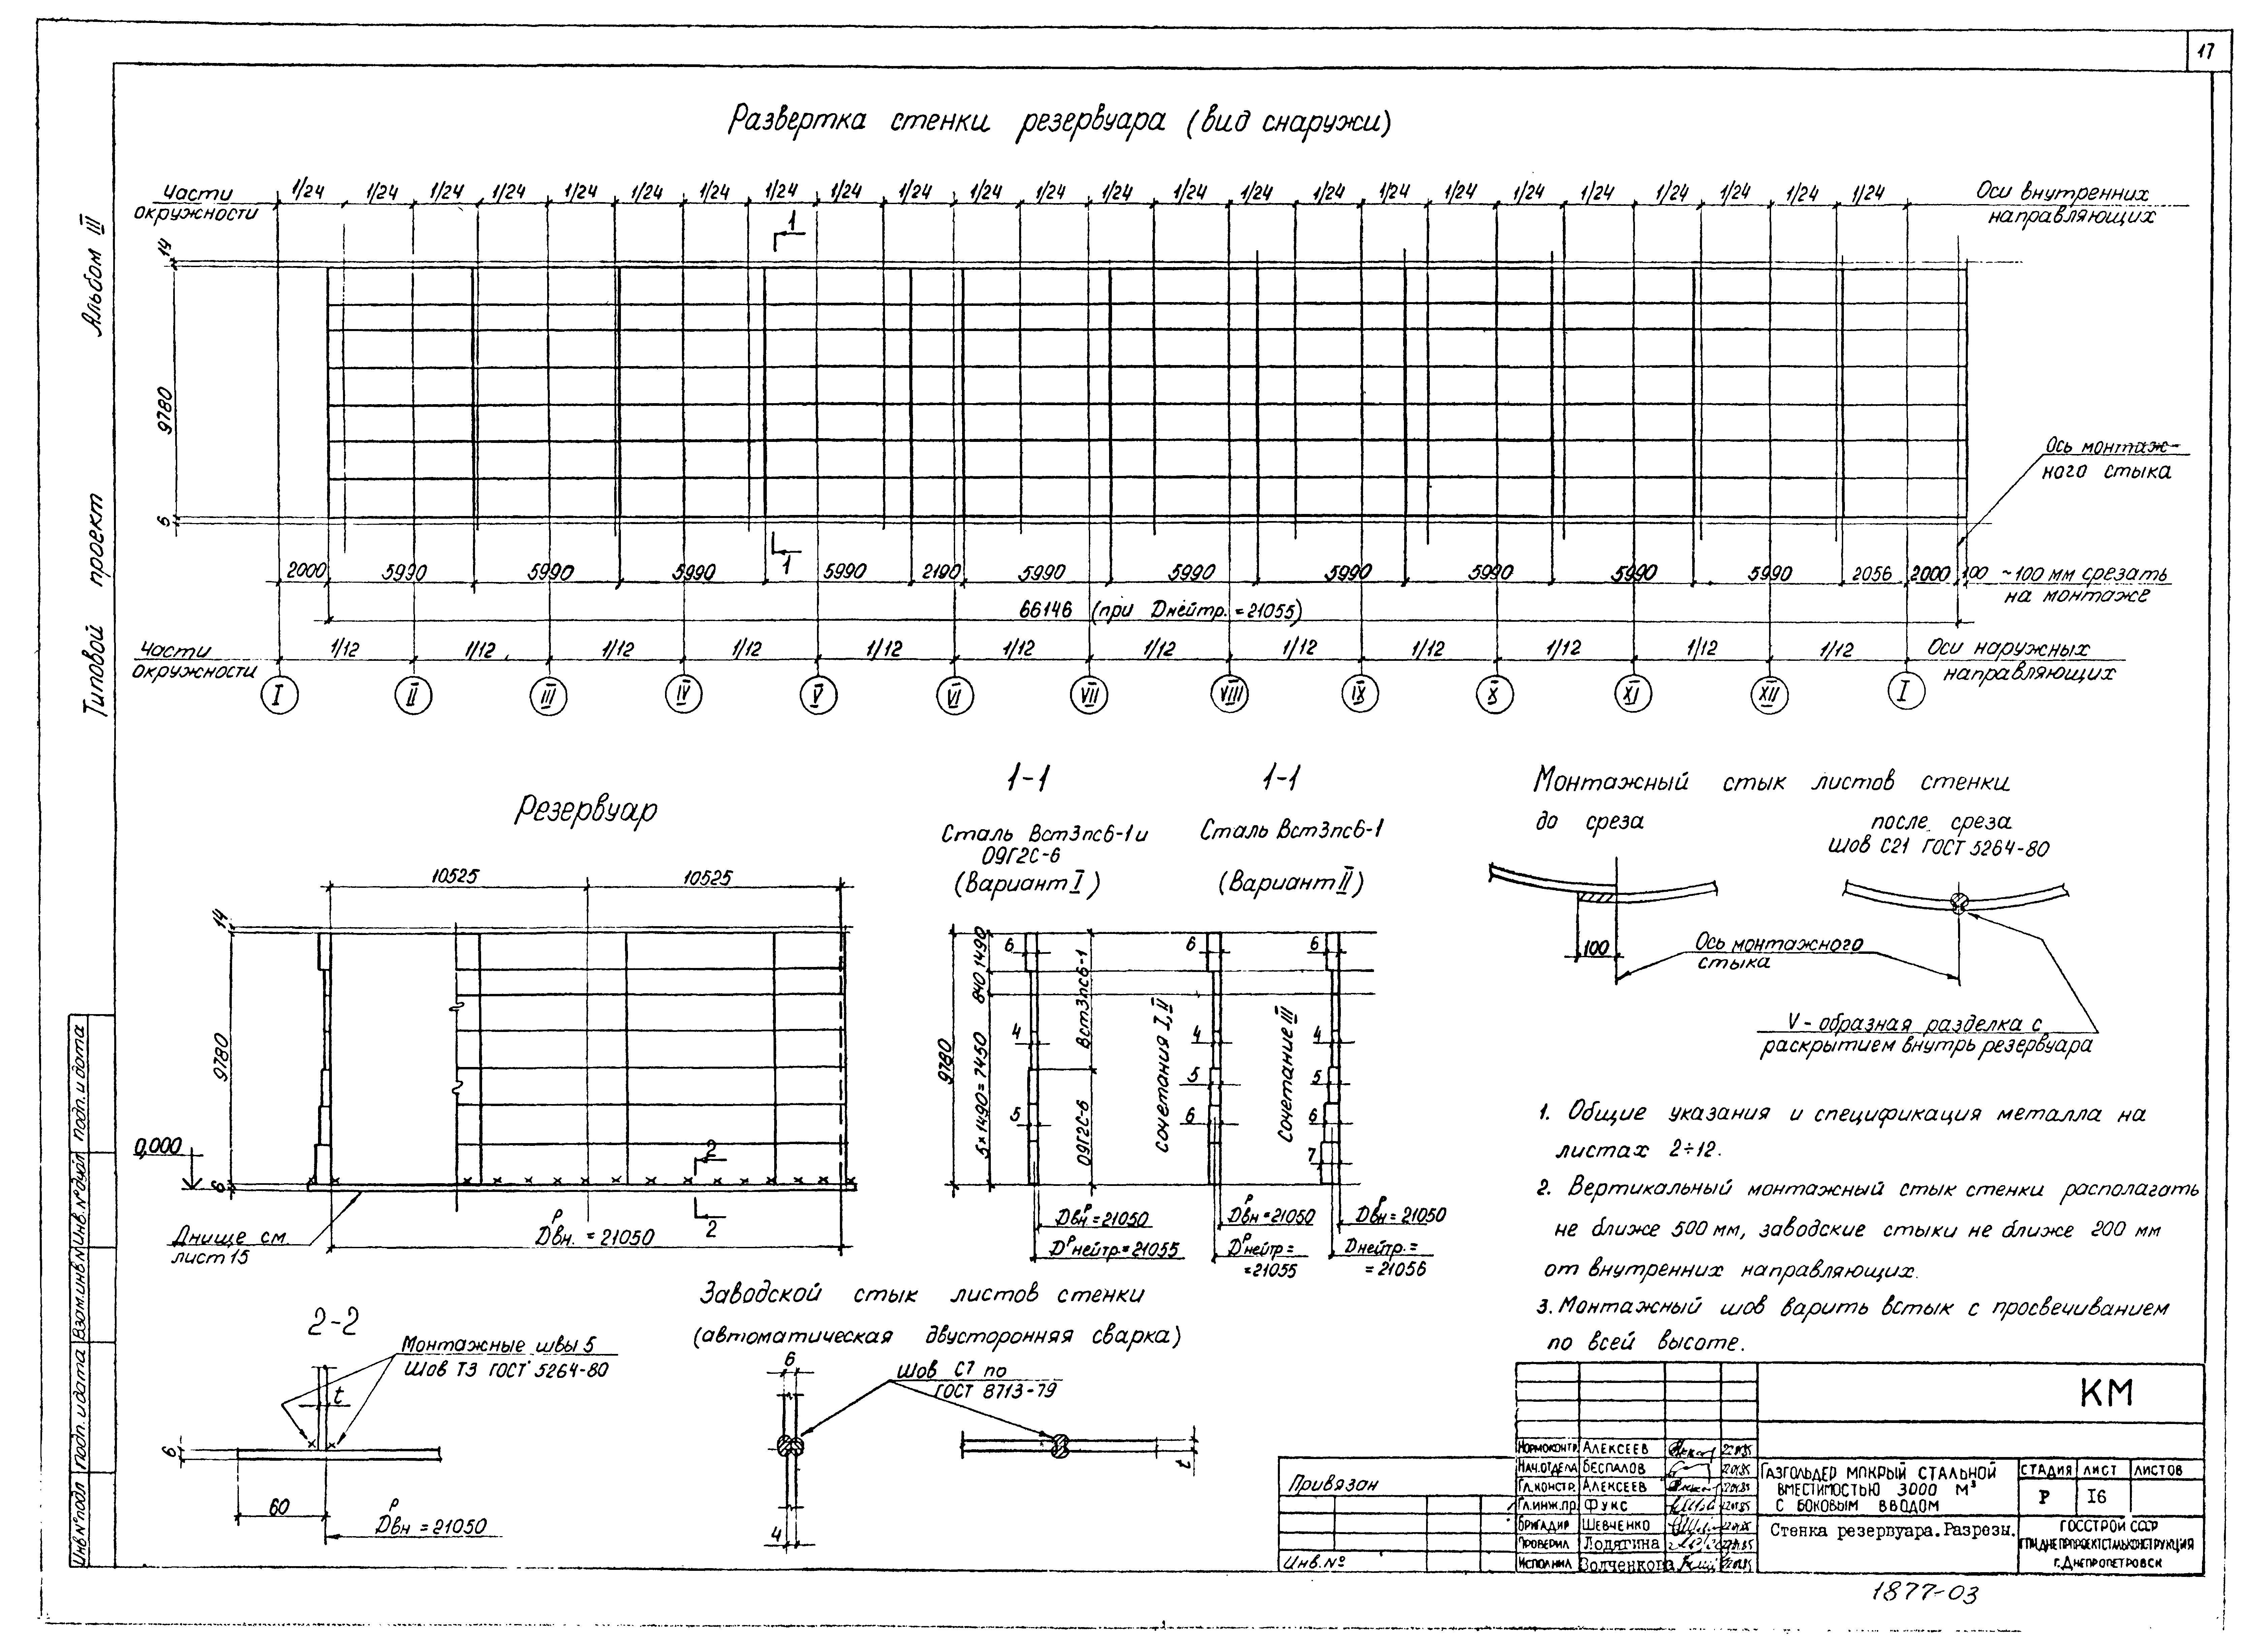 17
Развертка стенки резервуара (вид снаружи)
Части окружности
1/24 1/24 1/24 1/24 1/24 1/24 1/24 1/24 1/24 1/24 1/24 1/24 1/24 1/24 1/24 1/24 1/24 1/24 1/24 1/24 1/24 1/24 1/24 1/24
Оси внутренних
направляющих
1
14
9780
6
Ось монтаж-
ного стыка
1
2000 5990 5990 5990 5990 2190 5990 5990 5990 5990 5990 5990 2056 2000 100
~100 мм срезать
на монтаже
66146 (при Днейтр.=21055)
Части
окружности
1/12 1/12 1/12 1/12 1/12 1/12 1/12 1/12 1/12 1/12 1/12 1/12
Оси наружных
направляющих
I II III IV V VI VII VIII IX X XI XII I
Альбом III
Типовой проект
Резервуар
10525 10525
14
9780
0,000
6
2
2
Днище см.
лист 15
Дᴾвн. = 21050
1-1
Сталь Вст3пс6-1 и
09Г2С-6
(Вариант I)
9780
5×1490=7450 840 1490
6
4
5
Вст3пс6-1
09Г2С-6
Дᴾвн=21050
Дᴾнейтр=21055
1-1
Сталь Вст3пс6-1
(Вариант II)
сочетания I,II
6
4
5
6
Дᴾвн=21050
Дᴾнейтр=
=21055
сочетание III
6
4
5
6
7
Дᴾвн=21050
Днейтр.=
=21056
Монтажный стык листов стенки
до среза
после среза
шов С21 ГОСТ 5264-80
100
Ось монтажного
стыка
V-образная разделка с
раскрытием внутрь резервуара
1. Общие указания и спецификация металла на
листах 2÷12.
2. Вертикальный монтажный стык стенки располагать
не ближе 500 мм, заводские стыки не ближе 200 мм
от внутренних направляющих.
3. Монтажный шов варить встык с просвечиванием
по всей высоте.
2-2
Монтажные швы 5
Шов Т3 ГОСТ 5264-80
t
6
60
Дᴾвн = 21050
Заводской стык листов стенки
(автоматическая двусторонняя сварка)
6
4
Шов С7 по
ГОСТ 8713-79
t
Инв.№подл Подп. и дата Взам.инв.№ Инв.№дубл Подп. и дата
Привязан
Инв.№
КМ
Нормоконтр. Алексеев
Нач.отдела Беспалов
Гл.констр. Алексеев
Гл.инж.пр. Фукс
Бригадир Шевченко
Проверил Лодягина
Исполнил Волченкова
Газгольдер мокрый стальной
вместимостью 3000 м³
с боковым вводом
Стадия Лист Листов
Р 16
Стенка резервуара. Разрезы.
Госстрой СССР
ГПИ Днепрпроектстальконструкция
г.Днепропетровск
1877-03